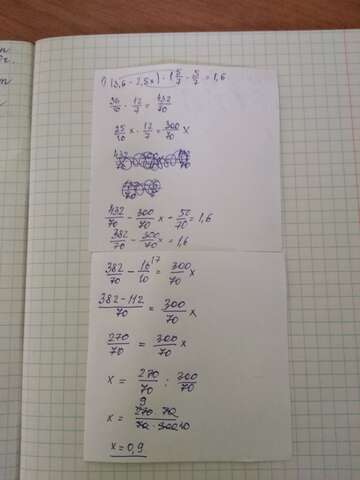 1) (3,6 - 2,5x) · 1 5/7 - 5/7 = 1,6
36/10 · 12/7 = 432/70
25/10 x · 12/7 = 300/70 x
432/70 - 300/70 x - 50/70 = 1,6
382/70 - 300/70 x = 1,6
382/70 - 16/10 \7 = 300/70 x
382-112/70 = 300/70 x
270/70 = 300/70 x
x = 270/70 : 300/70
x = 270 · 70/70 · 300 9 10
x = 0,9